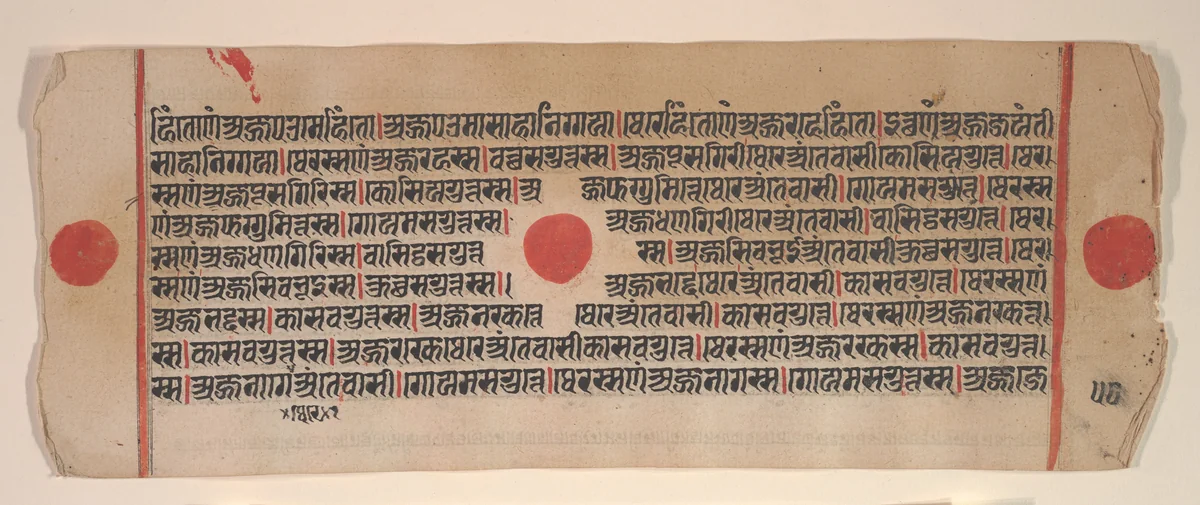 हिंतोणंअज्जपउमेहिंतो।अज्जपउमासाहानिग्गया।थेरेहिंतोणंअज्जरहेहिंतो।इच्छणंअज्जजयंती
साहानिग्गया।थेरस्सणंअज्जरहस्स।वच्छसगुत्तस्स।अज्जपूसगिरीथेरेअंतेवासी।कोसियगुत्ते।थेर।
स्सणंअज्जपूसगिरिस्स।कोसियगुत्तस्स।अ ज्जफग्गुमित्तेथेरेअंतेवासी।गोयमसगुत्ते।थेरस्स
णंअज्जफग्गुमित्तस्स।गोयमसगुत्तस्स। अज्जधणगिरीथेरेअंतेवासी।वासिट्ठसगुत्ते।थेर।
स्सणंअज्जधणगिरिस्स।वासिट्ठसगुत्त स्स।अज्जसिवभूईअंतेवासीकुच्छसगुत्ते।थेर।
स्सणंअज्जसिवभूइस्स।कुच्छसगुत्तस्स।। अज्जभद्देथेरेअंतेवासी।कासवगुत्ते।थेरस्सणं
अज्जभद्दस्स।कासवगुत्तस्स।अज्जनरकत्ते थेरेअंतेवासी।कासवगुत्ते।थेरस्सणंअज्जनरकत्त।
स्स।कासवगुत्तस्स।अज्जररकेथेरेअंतेवासीकासवगुत्ते।थेरस्सणंअज्जररकस्स।कासवगुत्त।
स्स।अज्जनागेअंतेवासी।गोयमसगुत्ते।थेरस्सणंअज्जनागस्स।गोयमसगुत्तस्स।अज्जजे
×थेरे×२